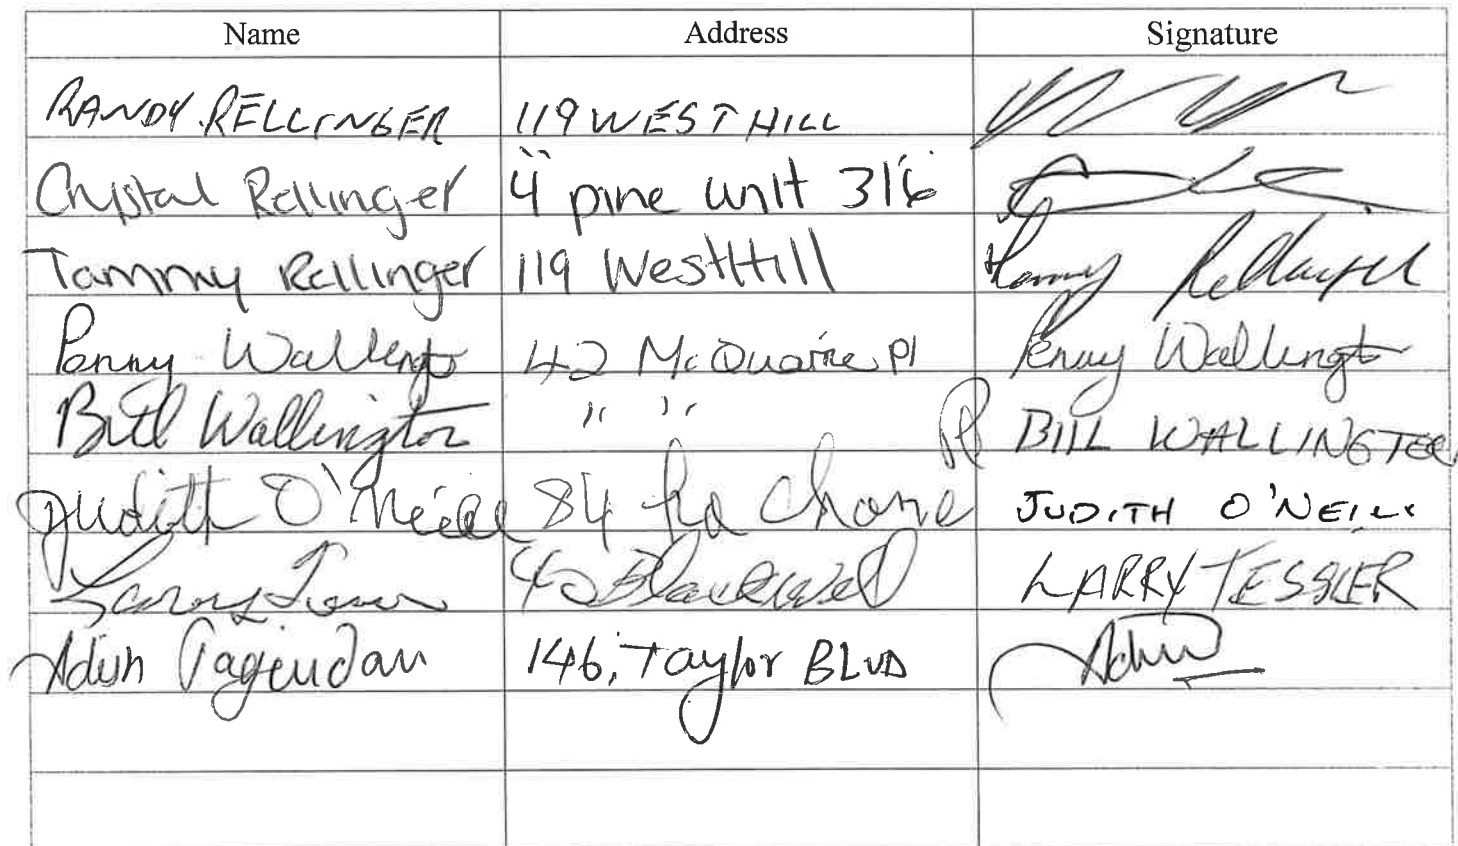 Name Address Signature
RANDY RELLINGER 119 WEST HILL
Crystal Rellinger 4 pine unit 316
Tammy Rellinger 119 WestHill Tammy Rellinger
Penny Wallingt 42 McQuarrie Pl Penny Wallingt
Bill Wallington " " Pl BILL WALLINGTON
Judith O'Neill 84 La Chone JUDITH O'NEILL
Larry 42 Blackwell LARRY TESSLER
146, Taylor BLVD